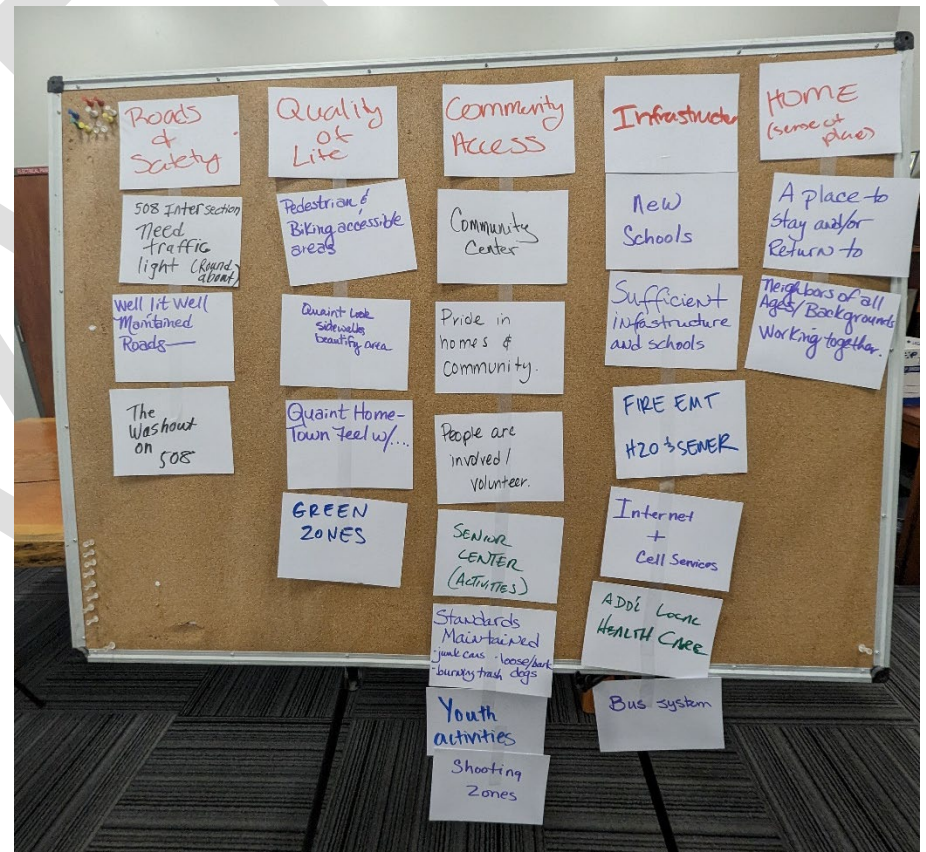 Roads
&
Safety
508 Intersection
Need
traffic
light (Round
about)
Well lit Well
Maintained
Roads—
The
Washout
on 508
Quality
of
Life
Pedestrian &
Biking accessible
areas
Quaint Look
sidewalks
beautify area
Quaint Home-
Town Feel w/....
GREEN
ZONES
Community
Access
Community
Center
Pride in
homes &
community.
People are
involved/
volunteer.
SENIOR
CENTER
(ACTIVITIES)
Standards
Maintained
-junk cars -loose/bark
-burning trash dogs
Youth
activities
Shooting
Zones
Infrastructure
New
Schools
Sufficient
infastructure
and schools
FIRE EMT
H2O & SEWER
Internet
+
Cell Services
ADD'L LOCAL
HEALTH CARE
Bus system
HOME
(sense of
place)
A place to
Stay and/or
Return to
Neighbors of all
Ages/Backgrounds
Working together.